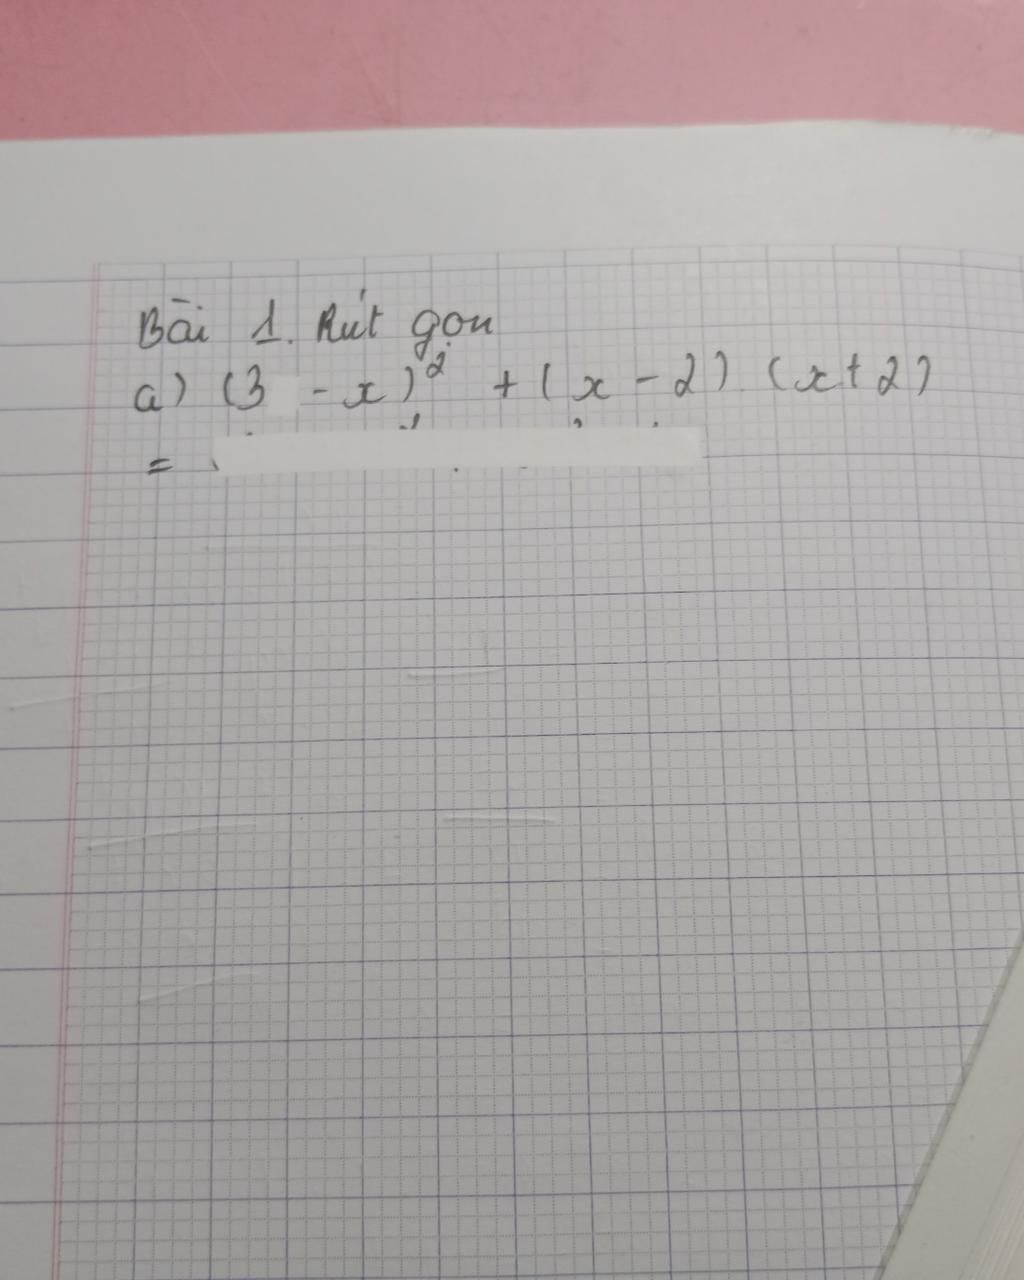 Bài 1. Rút gọn
a) (3 - x)² + (x - 2) . (x + 2)
=